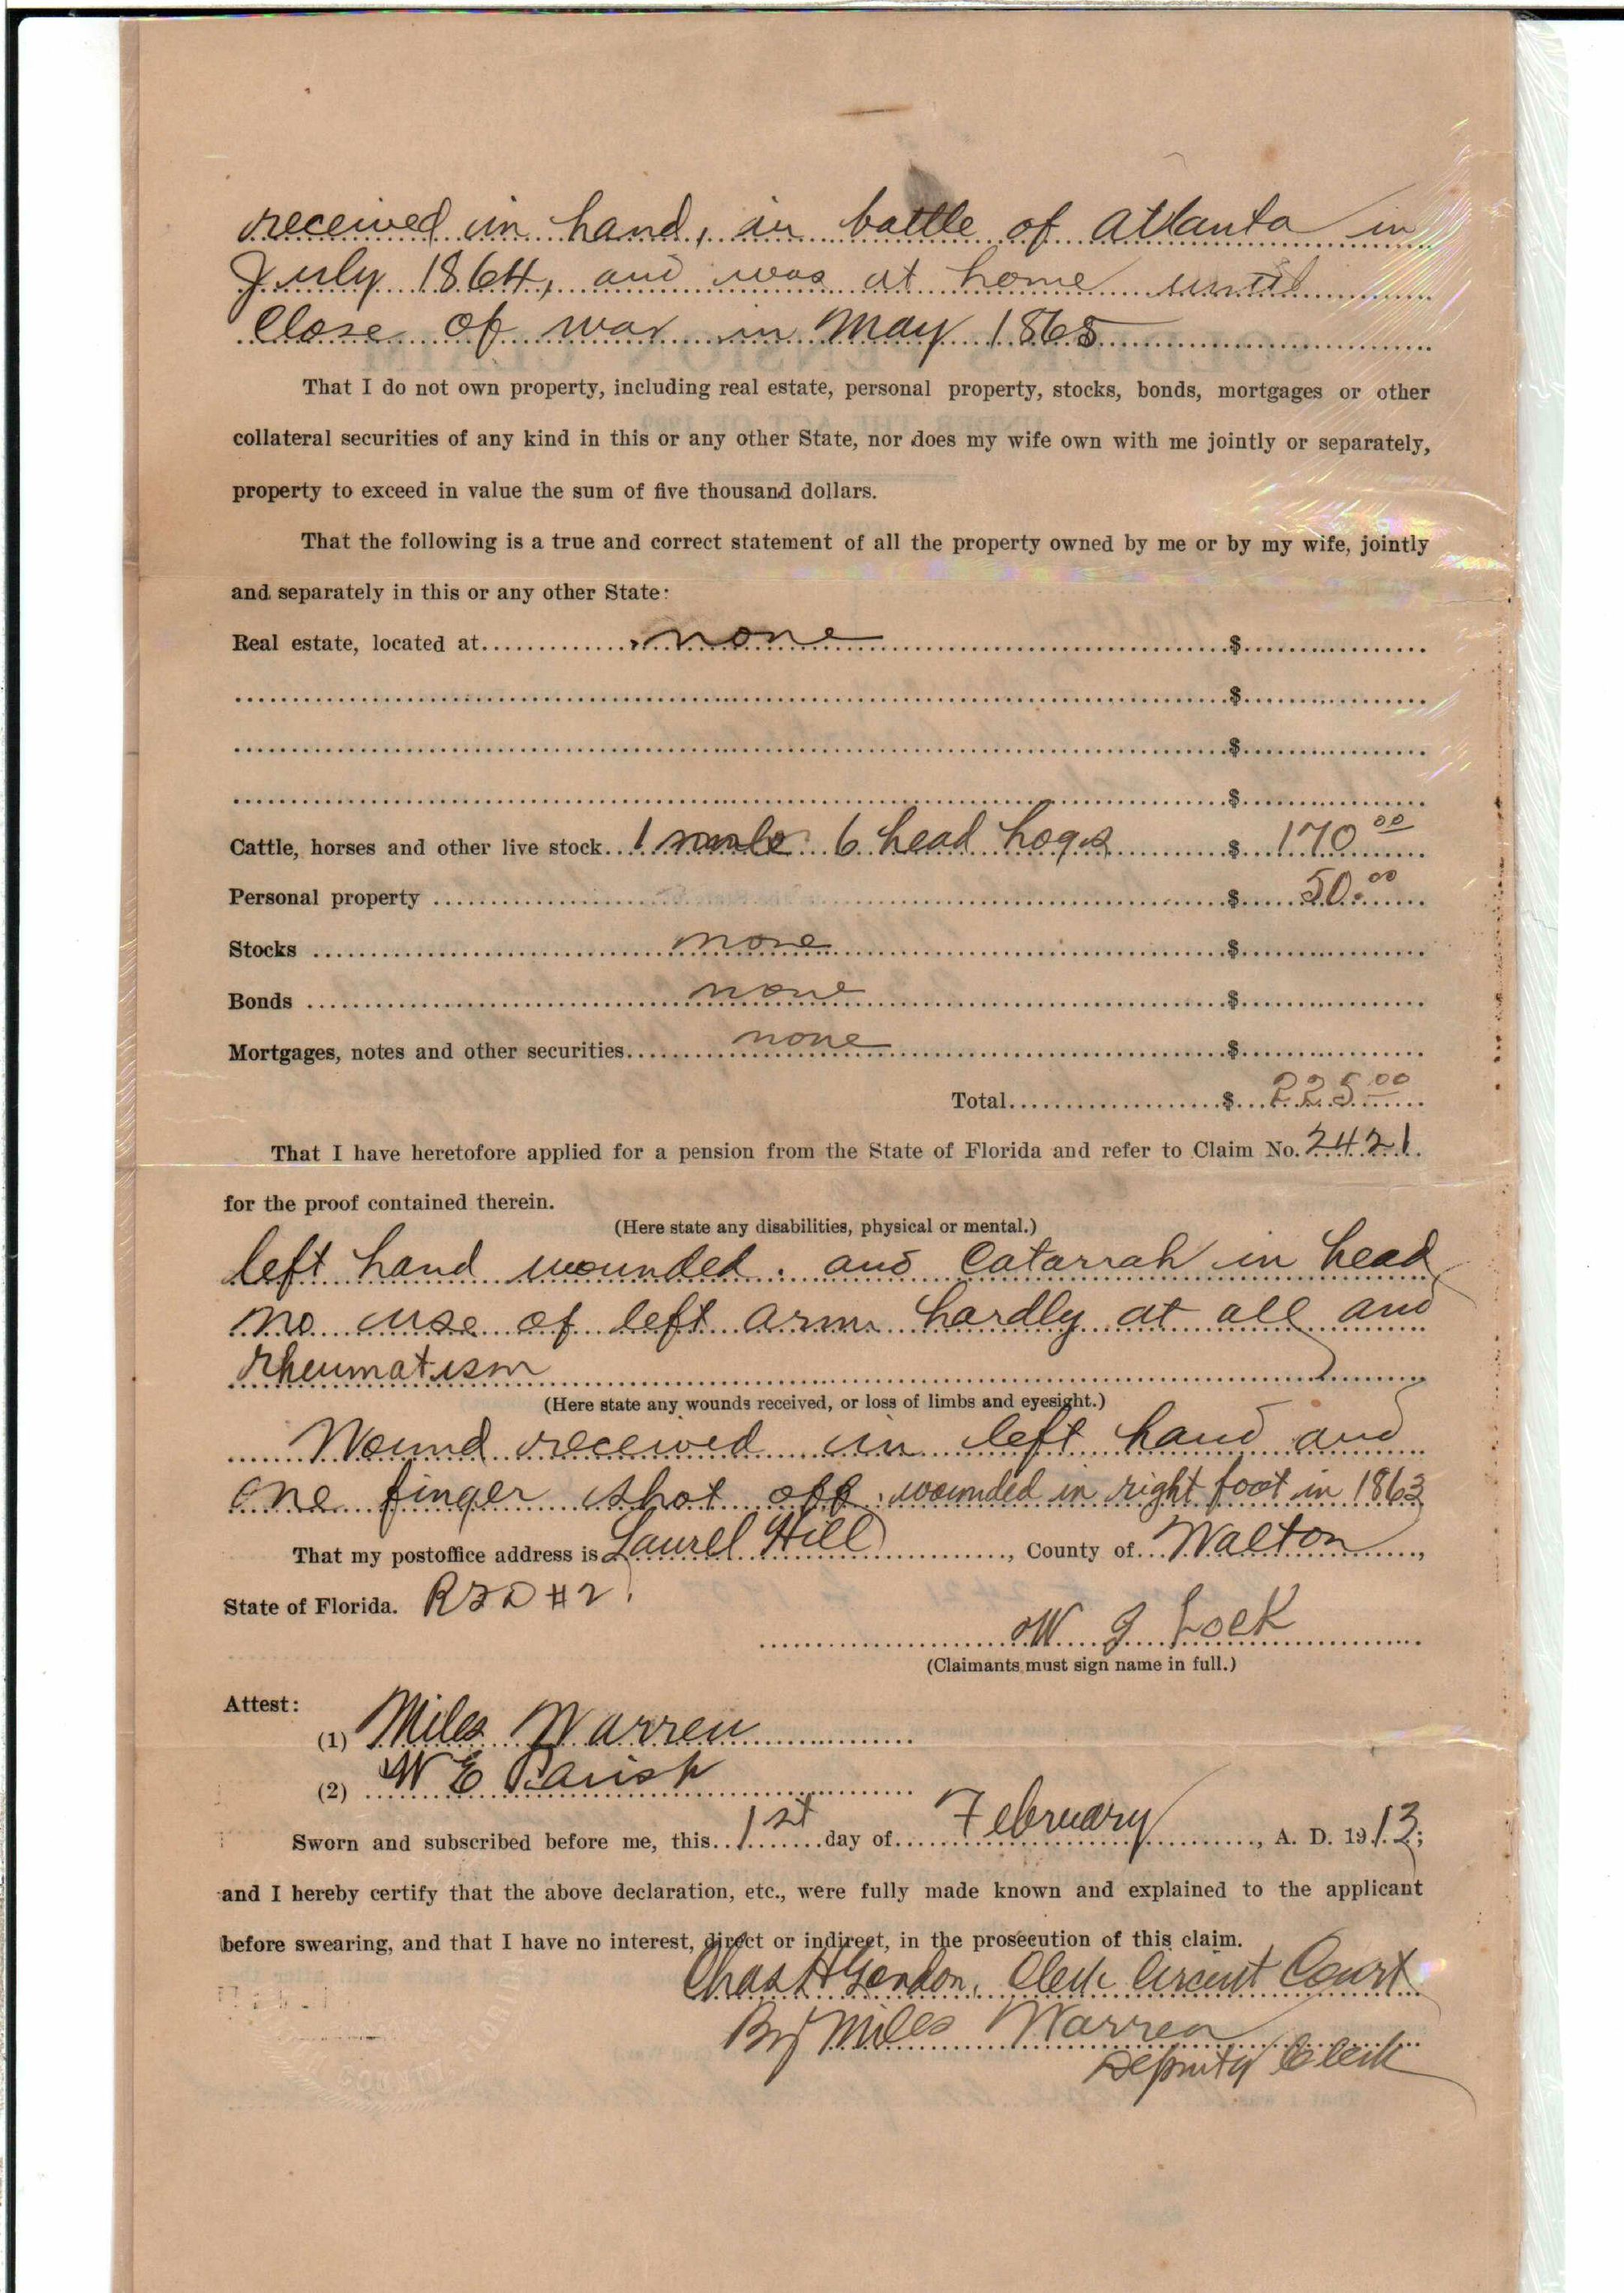 received in hand, in battle of Atlanta in
July 1864, and was at home until
Close of war in May 1865
That I do not own property, including real estate, personal property, stocks, bonds, mortgages or other
collateral securities of any kind in this or any other State, nor does my wife own with me jointly or separately,
property to exceed in value the sum of five thousand dollars.
That the following is a true and correct statement of all the property owned by me or by my wife, jointly
and separately in this or any other State:
Real estate, located at none $
$
$
$
Cattle, horses and other live stock 1 mule 6 head hogs $ 170.00
Personal property $ 50.00
Stocks none $
Bonds none $
Mortgages, notes and other securities none $
Total $ 225.00
That I have heretofore applied for a pension from the State of Florida and refer to Claim No. 2421
for the proof contained therein.
(Here state any disabilities, physical or mental.)
left hand wounded. and Catarrah in head
no use of left arm hardly at all and
rheumatism
(Here state any wounds received, or loss of limbs and eyesight.)
Wound received in left hand and
one finger shot off. wounded in right foot in 1863
That my postoffice address is Laurel Hill, County of Walton,
State of Florida. RFD #2.
W J Lock
(Claimants must sign name in full.)
Attest:
(1) Miles Warren
(2) W E Parish
Sworn and subscribed before me, this 1st day of February, A. D. 1913;
and I hereby certify that the above declaration, etc., were fully made known and explained to the applicant
before swearing, and that I have no interest, direct or indirect, in the prosecution of this claim.
Chas H Gordon, Clerk Circuit Court
By Miles Warren
Deputy Clerk